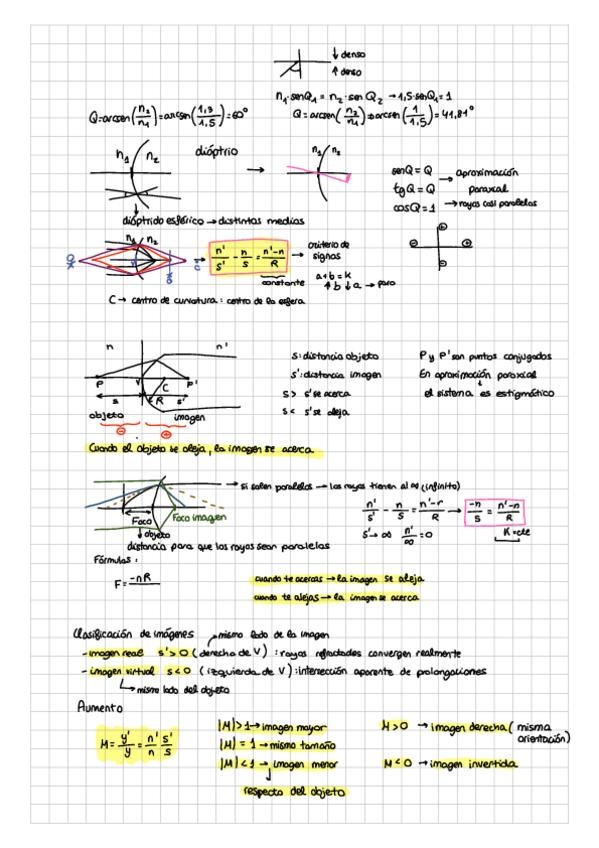 ↓ denso
↑ denso
n₁·senQ₁ = n₂·sen Q₂ → 1,5·senQ₁ = 1
Q = arcsen(n₂/n₁) = arcsen(1,3/1,5) = 60° Q = arcsen(n₂/n₁) ⇒ arcsen(1/1,5) = 41,81°
n₁ n₂ dióptrio → n₁ n₂
senQ = Q
tgQ = Q
cosQ = 1
→ aproximación
paraxial
→ rayos casi paralelos
dióptrido esférico → distintas medias
n₁ n₂
n'/s' - n/s = n'-n/R → criterio de
signos
constante
a+b = K
↑b ↓a → para
C → centro de curvatura: centro de la esfera
n n'
P V C P'
s R s'
objeto imagen
s: distancia objeto
s': distancia imagen
s> s' se acerca
s< s' se aleja
P y P' son puntos conjugados
En aproximación paraxial
el sistema es estigmático
Cuando el objeto se aleja, la imagen se acerca
→ si salen paralelos → los rayos tienen al ∞ (infinito)
Foco Foco imagen
objeto
distancia para que los rayos sean paralelos
n'/s' - n/s = n'-r/R → -n/s = n'-n/R
s' → ∞ n'/∞ = 0 K=cte
Fórmulas:
F = -nR
cuando te acercas → la imagen se aleja
cuando te alejas → la imagen se acerca
Clasificación de imágenes → mismo lado de la imagen
- imagen real s' > 0 (derecha de V) : rayos refractados convergen realmente
- imagen virtual s < 0 (izquierda de V) : intersección aparente de prolongaciones
→ mismo lado del objeto
Aumento
M = y'/y = n'/n s'/s
|M| > 1 → imagen mayor
|M| = 1 → mismo tamaño
|M| < 1 → imagen menor
respecto del objeto
M > 0 → imagen derecha (misma
orientación)
M < 0 → imagen invertida